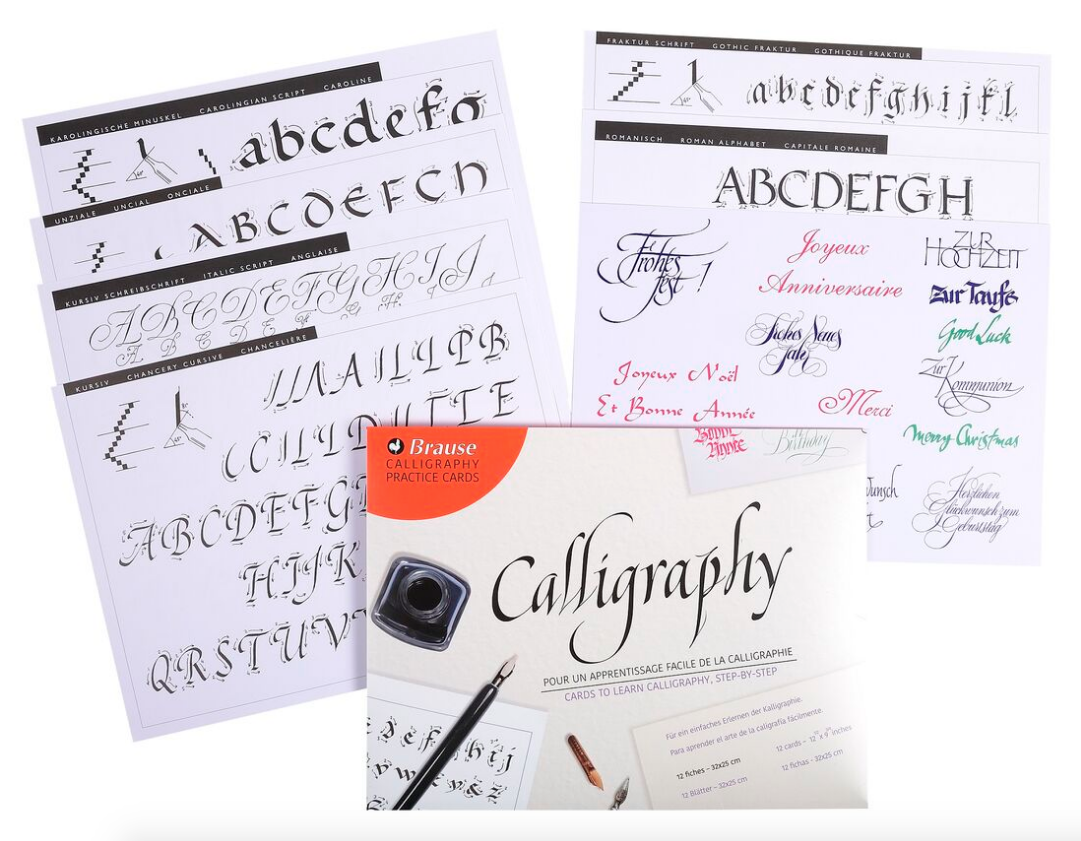 KAROLINGISCHE MINUSKEL CAROLINGIAN SCRIPT CAROLINE
abcdefg
UNZIALE UNCIAL ONCIALE
ABCDEFCH
KURSIV SCHREIBSCHRIFT ITALIC SCRIPT ANGLAISE
ABCDEFGHIJ
A B C D E F G H
KURSIV CHANCERY CURSIVE CHANCELIÈRE
ABCDEFG
HIJK
QRSTUV
FRAKTUR SCHRIFT GOTHIC FRAKTUR GOTHIQUE FRAKTUR
abcdefghijkl
ROMANISCH ROMAN ALPHABET CAPITALE ROMAINE
ABCDEFGH
Frohes
fest!
Joyeux
Anniversaire
ZUR
HOCHZEIT
Zur Taufe
Frohes Neues
Jahr
Good Luck
Joyeux Noël
Et Bonne Année
Zur
Kommunion
Merci
Merry Christmas
Herzlichen
Glückwunsch zum
Geburtstag
Bonne
Année
Birthday
Brause
CALLIGRAPHY
PRACTICE CARDS
Calligraphy
POUR UN APPRENTISSAGE FACILE DE LA CALLIGRAPHIE
CARDS TO LEARN CALLIGRAPHY, STEP-BY-STEP
Für ein einfaches Erlernen der Kalligraphie.
Para aprender el arte de la caligrafía fácilmente.
12 fiches – 32x25 cm
12 cards – 12" x 9" inches
12 Blätter – 32x25 cm
12 fichas - 32x25 cm
defghij
vwxyz&